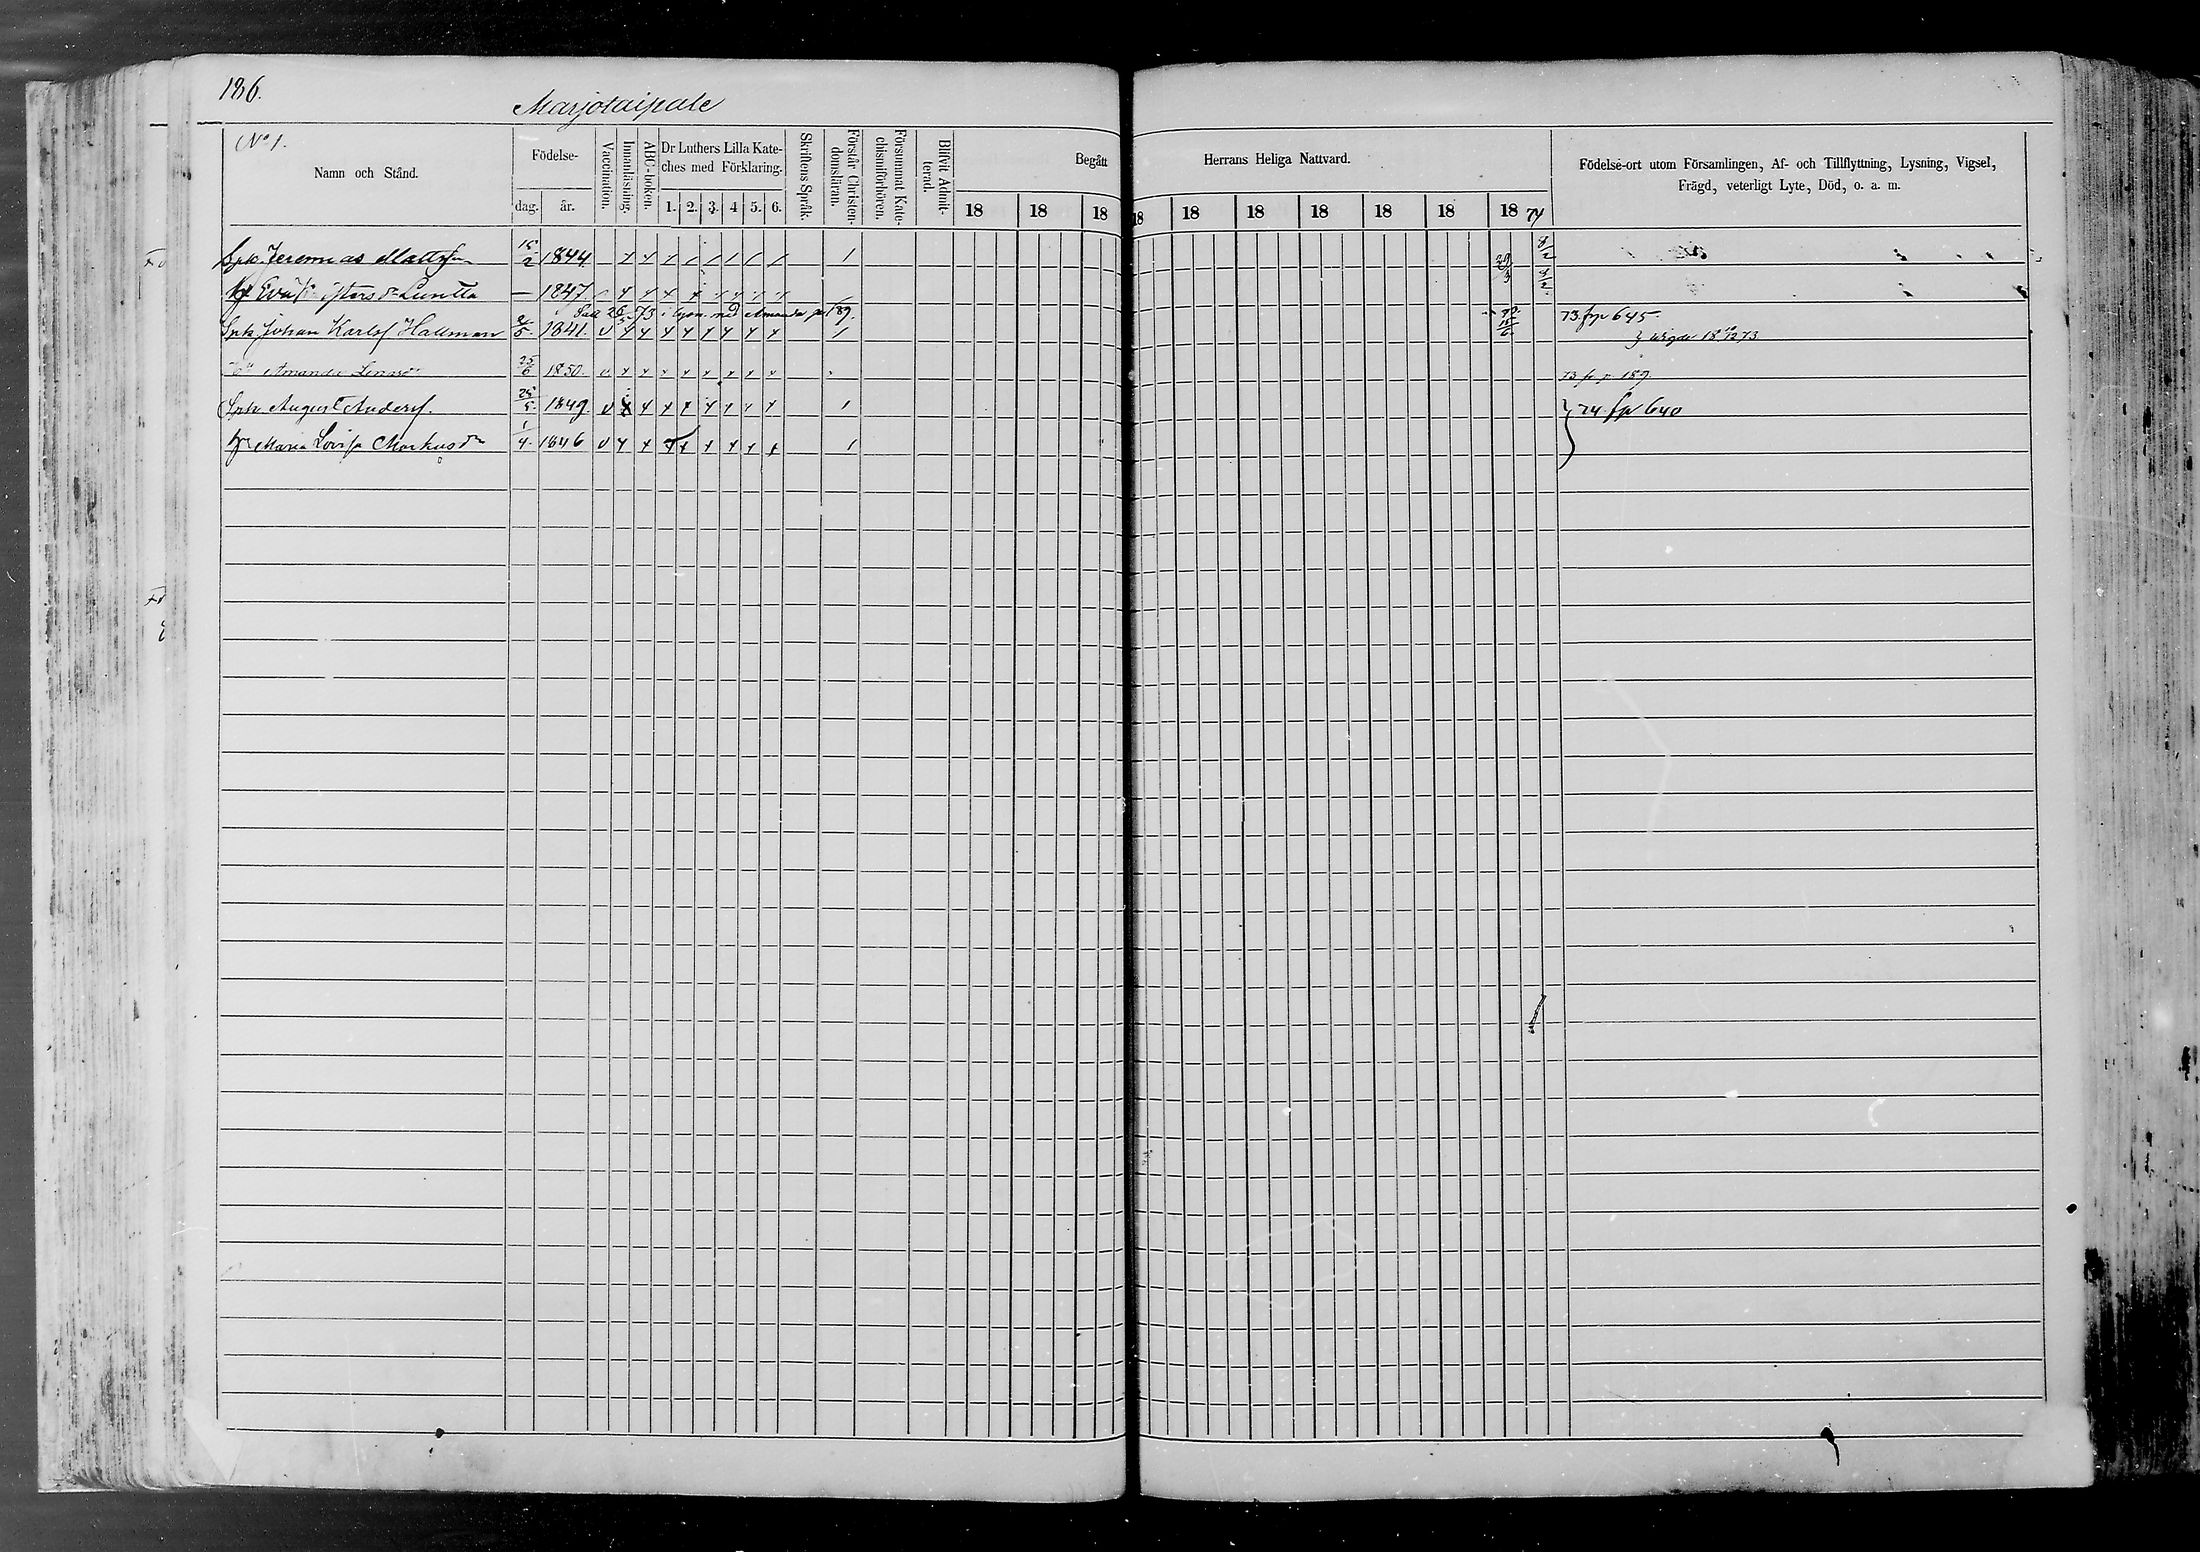 186.
Marjotaipale
No 1.
Namn och Stånd.
Födelse-
dag. år.
Vaccination.
Innanläsning.
ABC-boken.
Dr Luthers Lilla Kate-
ches med Förklaring.
1. 2. 3. 4 5. 6.
Skriftens Språk.
Förstår Christen-
domsläran.
Försummat Kate-
chismiförhören.
Blifvit Admit-
terad.
Begått Herrans Heliga Nattvard.
18 18 18 18 18 18 18 18 18 18 74
Födelse-ort utom Församlingen, Af- och Tillflyttning, Lysning, Vigsel,
Frägd, veterligt Lyte, Död, o. a. m.
Jeremias Matts 15/2 1844 1 29/3 8/2
Eva 1847 8/2
73 Amanda 189.
Johan Karls Hallman 1841. v 1 73 fr p 645
18 73
Amanda 25/6 1850. v 73 fr p. 189
August Anders. 1849. v 1 74 fr p 640
Maria Lovisa Markusdr 1/4 1846 v 1